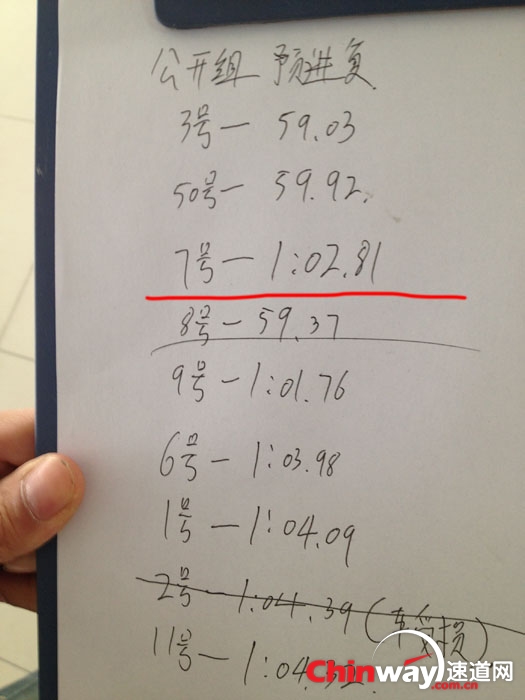 公开组 预进复
3号—59.03
50号—59.92.
7号—1:02.81
8号—59.37
9号—1:01.76
6号—1:03.98
1号—1:04.09
2号—1:04.39(车资损)
11号—1:04.
Chinway 速道网
.com.cn